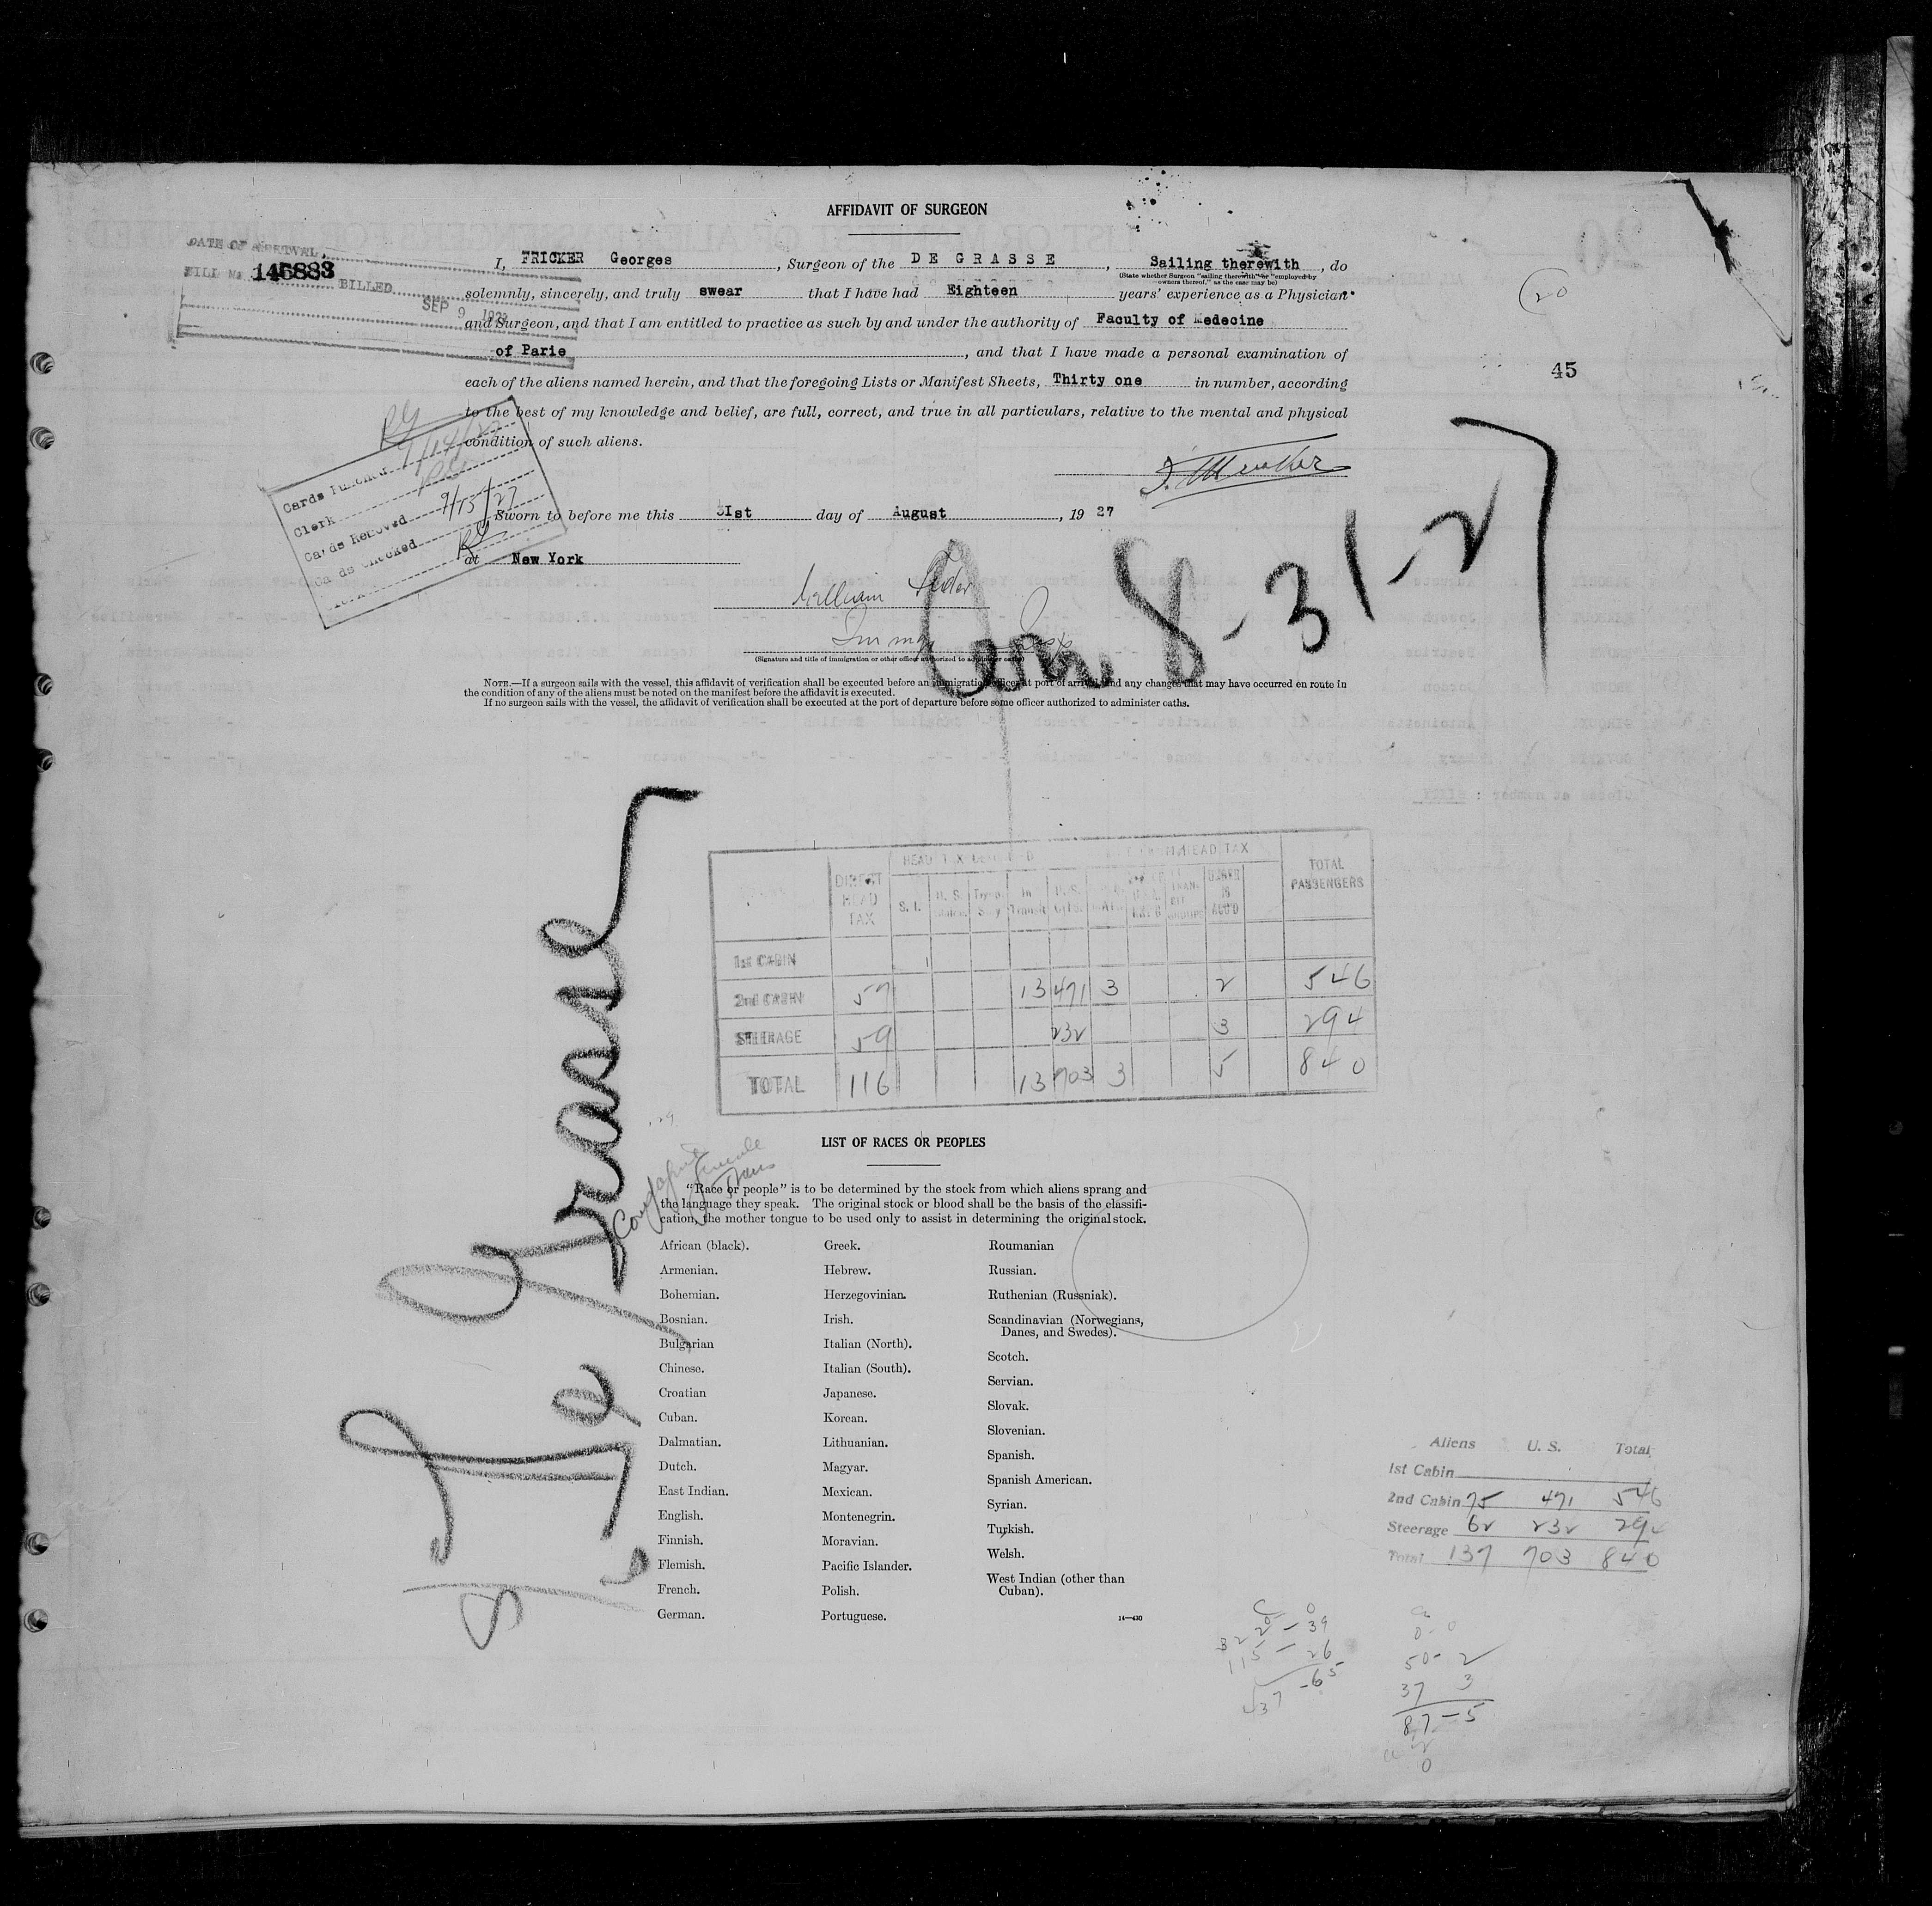 AFFIDAVIT OF SURGEON
DATE OF
BILL No 146883
BILLED
SEP 9
I, FRICKER Georges, Surgeon of the DE GRASSE, Sailing therewith, do
(State whether Surgeon "sailing therewith" or "employed by owners thereof," as the case may be)
solemnly, sincerely, and truly swear that I have had Eighteen years' experience as a Physician
and Surgeon, and that I am entitled to practice as such by and under the authority of Faculty of Medecine
of Parie, and that I have made a personal examination of
each of the aliens named herein, and that the foregoing Lists or Manifest Sheets, Thirty one in number, according
to the best of my knowledge and belief, are full, correct, and true in all particulars, relative to the mental and physical
condition of such aliens.
20
45
Cards Punched
Clerk
Cards Removed 9/15/27
Cards Checked
Clerk
Sworn to before me this 3Ist day of August, 19 27
at New York
William
8-31-27
(Signature and title of immigration or other officer authorized to administer oaths)
NOTE.—If a surgeon sails with the vessel, this affidavit of verification shall be executed before an immigration officer at port of arrival and any changes that may have occurred en route in
the condition of any of the aliens must be noted on the manifest before the affidavit is executed.
If no surgeon sails with the vessel, the affidavit of verification shall be executed at the port of departure before some officer authorized to administer oaths.
DIRECT HEAD TAX
HEAD TAX
HEAD TAX
TOTAL PASSENGERS
S. I.
U. S.
In Transit
U.S. Cits.
1st CABIN
2nd CABIN 57 13 471 3 2 546
STEERAGE 59 232 3 294
TOTAL 116 13 703 3 5 840
De Grasse
LIST OF RACES OR PEOPLES
"Race or people" is to be determined by the stock from which aliens sprang and
the language they speak. The original stock or blood shall be the basis of the classifi-
cation, the mother tongue to be used only to assist in determining the original stock.
African (black).
Armenian.
Bohemian.
Bosnian.
Bulgarian
Chinese.
Croatian
Cuban.
Dalmatian.
Dutch.
East Indian.
English.
Finnish.
Flemish.
French.
German.
Greek.
Hebrew.
Herzegovinian.
Irish.
Italian (North).
Italian (South).
Japanese.
Korean.
Lithuanian.
Magyar.
Mexican.
Montenegrin.
Moravian.
Pacific Islander.
Polish.
Portuguese.
Roumanian
Russian.
Ruthenian (Russniak).
Scandinavian (Norwegians,
Danes, and Swedes).
Scotch.
Servian.
Slovak.
Slovenian.
Spanish.
Spanish American.
Syrian.
Turkish.
Welsh.
West Indian (other than
Cuban).
14—430
Aliens U. S. Total
1st Cabin
2nd Cabin 75 471 546
Steerage 62 232 294
Total 137 703 840
115 — 26
50- 2
37 3
87-5
0